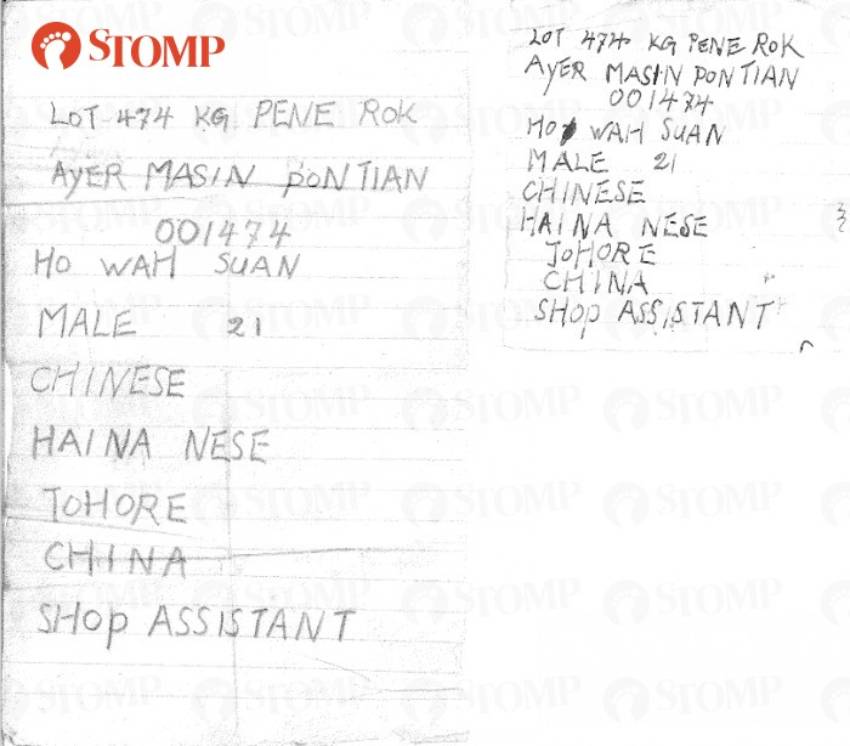 STOMP
LOT 474 KG PENE ROK
AYER MASIN PONTIAN
001474
HO WAH SUAN
MALE 21
CHINESE
HAINA NESE
JOHORE
CHINA
SHOP ASSISTANT
LOT 474 KG PENE ROK
AYER MASIN PONTIAN
001474
HO WAH SUAN
MALE 21
CHINESE
HAINA NESE
JOHORE
CHINA
SHOP ASSISTANT